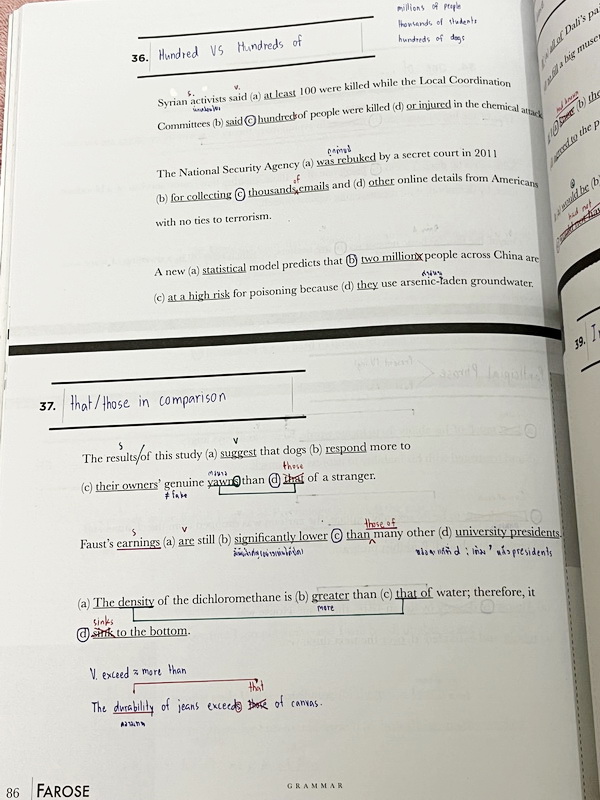 millions of people
thousands of students
hundreds of dogs
36. Hundred VS Hundreds of
s. v.
Syrian activists said (a) at least 100 were killed while the Local Coordination
Committees (b) said (c) hundreds of people were killed (d) or injured in the chemical attack
The National Security Agency (a) was rebuked by a secret court in 2011
of
(b) for collecting (c) thousands emails and (d) other online details from Americans
with no ties to terrorism.
A new (a) statistical model predicts that (b) two million people across China are
(c) at a high risk for poisoning because (d) they use arsenic-laden groundwater.
37. that/those in comparison
s v
The results of this study (a) suggest that dogs (b) respond more to
those
(c) their owners' genuine yawns than (d) that of a stranger.
≠ fake
s v those of
Faust's earnings (a) are still (b) significantly lower (c) than many other (d) university presidents.
(a) The density of the dichloromethane is (b) greater than (c) that of water; therefore, it
more
sinks
(d) sink to the bottom.
V. exceed = more than
that
The durability of jeans exceeds those of canvas.
86 FAROSE
GRAMMAR
39.